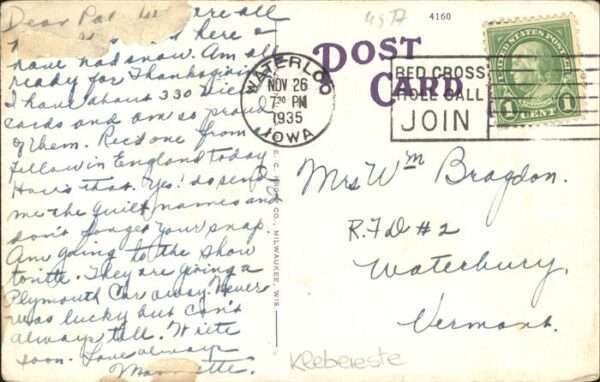 Dear Pal are all
here &
have had snow. Am all
ready for Thanksgiving
I have about 330
cards and am so proud
of them. Rec'd one from
fellow in England today
How's that. Yes! do send
me the quilt names and
don't forget your snap.
Am going to the show
tonite. They are giving a
Plymouth Car away. Never
was lucky but can't
always tell. Write
soon. Love always
4160
POST
CARD
WATERLOO
NOV 26
7:30 PM
1935
IOWA
RED CROSS
ROLL CALL
JOIN
UNITED STATES POSTAGE
1 1
CENT
E. C. KROPP CO., MILWAUKEE, WIS.
Mrs Wm Bragdon.
R.F.D. #2
Waterbury,
Vermont.
Klebereste